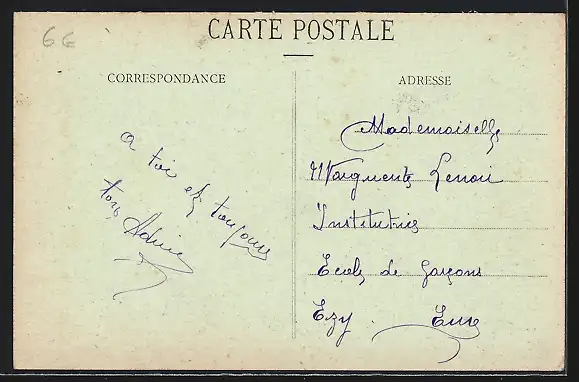 6E
CARTE POSTALE
CORRESPONDANCE
A toi et toujours
ton
ADRESSE
Mademoiselle
Marguerite Lenoir
Institutrice
Ecole de Garçons
Ezy Eure